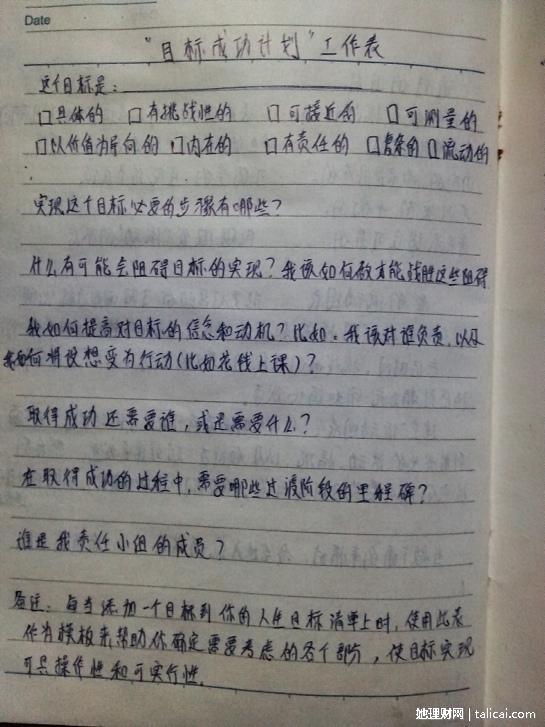 Date
"目标成功计划"工作表
这个目标是：
□具体的 □有挑战性的 □可接近的 □可测量的
□以价值为导向的 □内在的 □有责任的 □复杂的 □流动的
实现这个目标必要的步骤有哪些？
什么有可能会阻碍目标的实现？我该如何做才能战胜这些阻碍
我如何提高对目标的信念和动机？比如：我该对谁负责，以及
我如何将设想变为行动（比如花钱上课）？
取得成功还需要谁，或是需要什么？
在取得成功的过程中，需要哪些过渡阶段的里程碑？
谁是我责任小组的成员？
备注：每当添加一个目标到你的人生目标清单上时，使用此表
作为模板来帮助你确定需要考虑的各个部分，使目标实现
可具操作性和可实行性。
她理财网 talicai.com